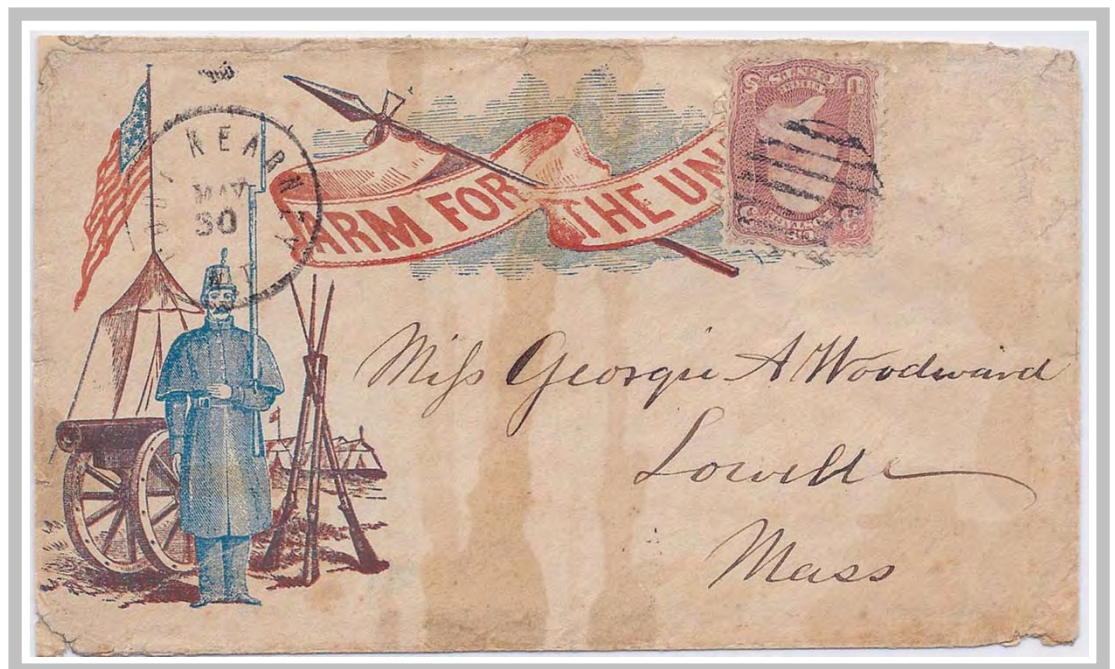 KEARN
MAY
30
N T
ARM FOR THE UN
Miſs Georgie A Woodward
Lowell
Mass